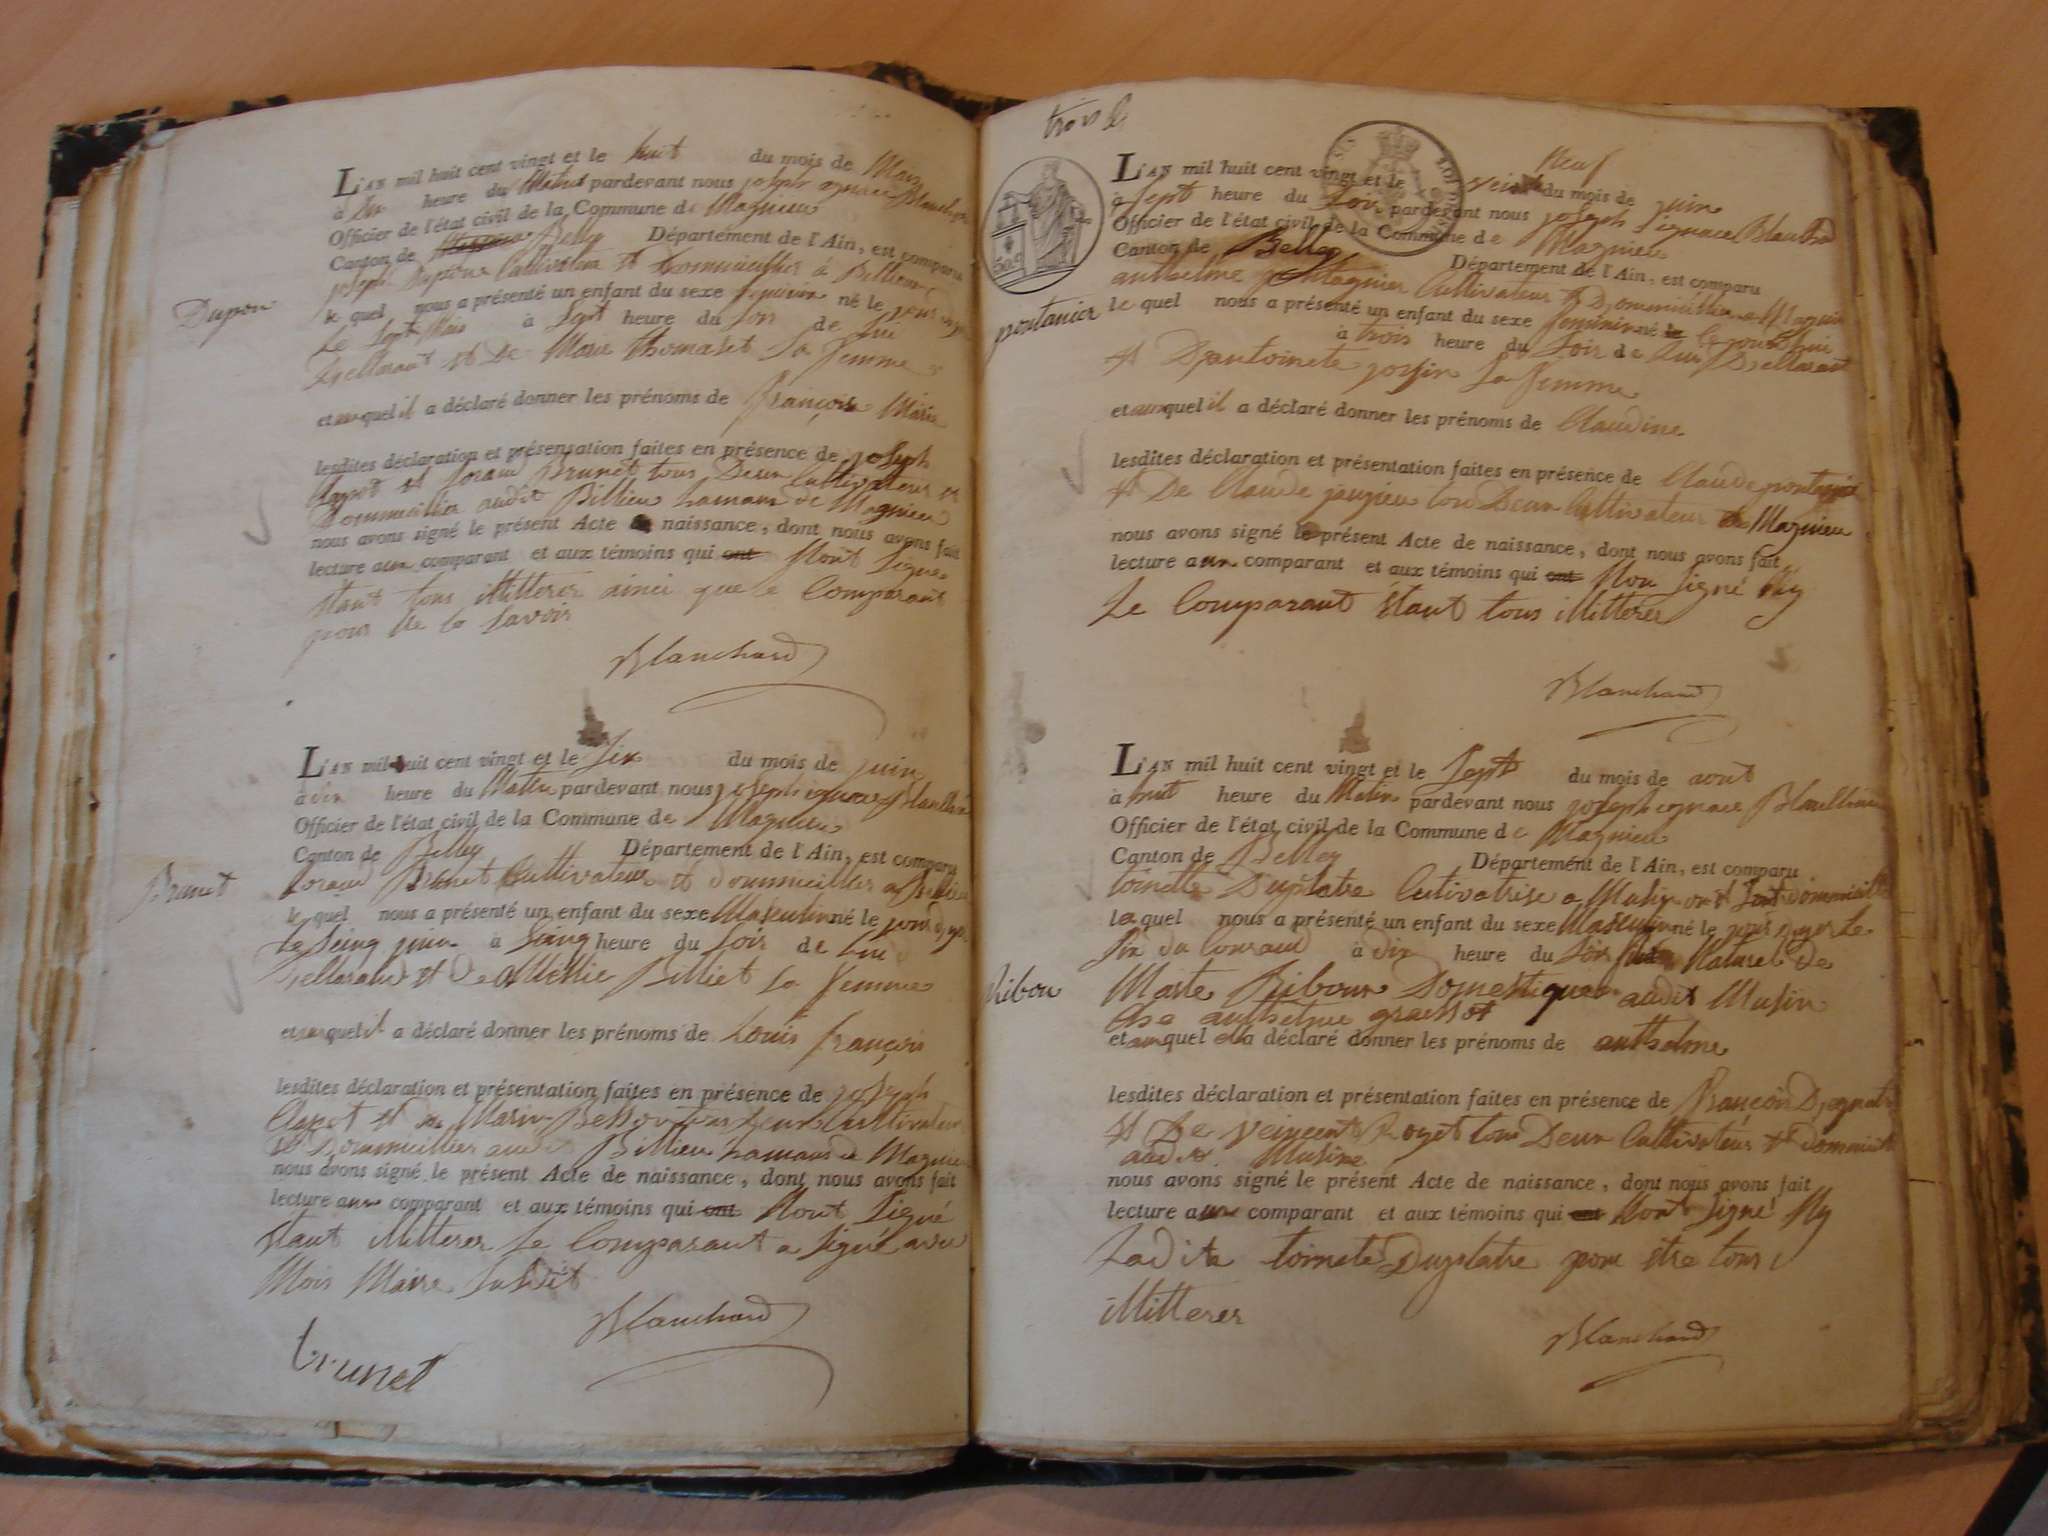 L'AN mil huit cent vingt et le huit du mois de Mars
à Dix heure du Matin pardevant nous joseph ignace Blanchard
Officier de l'état civil de la Commune de Magnieu
Canton de Belley Département de l'Ain, est comparu
joseph Dupon Cultivateur et Dommicillier à Billieu
le quel nous a présenté un enfant du sexe feminin né le jour
Dupon
Le Sept Mars à Sept heure du Soir de Lui
Dyellarant et De Marie thomaset Sa femme
et auquel il a déclaré donner les prénoms de françoise Marie
lesdites déclaration et présensation faites en présence de joseph
Clapot et Brunet tous Deux Cultivateur et
Dommicillier audit Billieu hamaud de Magnieu
nous avons signé le présent Acte de naissance, dont nous avons fait
lecture aux comparant et aux témoins qui ont Nont Signé
Etant tous illitterer ainci que le Comparant
pour Ne le Savoir
Blanchard
L'AN mil huit cent vingt et le Six du mois de juin
à dix heure du Matin pardevant nous joseph ignace Blanchard
Officier de l'état civil de la Commune de Magnieu
Canton de Belley Département de l'Ain, est comparu
Brunet Cultivateur et Dommicillier a Billieu
Brunet
le quel nous a présenté un enfant du sexe Masculin né le jour dyer
Le Sinq juin à Sinq heure du Soir de Lui
Dyellarant et De Billiet Sa femme
et auquel il a déclaré donner les prénoms de Louis françois
lesdites déclaration et présentation faites en présence de joseph
Clapot et de Marin tous Deux Cultivateur
et Dommicillier audit Billieu hamaud de Magnieu
nous avons signé le présent Acte de naissance, dont nous avons fait
lecture aux comparant et aux témoins qui ont Nont Signé
Etant illitterer Le Comparant a Signé avec
Nois Maire Susdit
Blanchard
brunet
trois
L'AN mil huit cent vingt et le veint Neuf du mois de juin
à Sept heure du Soir pardevant nous joseph ignace Blanchard
Officier de l'état civil de la Commune de Magnieu
Canton de Belley Département de l'Ain, est comparu
anthelme pontanier Cultivateur et Dommicillier a Magnieu
pontanier
le quel nous a présenté un enfant du sexe feminin né le jourdhui
à trois heure du Soir de Lui Dyellarant
et Dantoinete Sa femme
et auquel il a déclaré donner les prénoms de Claudine
lesdites déclaration et présentation faites en présence de Claude pontanier
et De Claude tous Deux Cultivateur de Magnieu
nous avons signé le présent Acte de naissance, dont nous avons fait
lecture aux comparant et aux témoins qui ont Non Signé Ny
Le Comparant Etant tous illitterer
Blanchard
L'AN mil huit cent vingt et le Sept du mois de aout
à huit heure du Matin pardevant nous joseph ignace Blanchard
Officier de l'état civil de la Commune de Magnieu
Canton de Belley Département de l'Ain, est comparu
toinette Duplatre Cultivatrise a Musin
laquel nous a présenté un enfant du sexe Masculin né le jour dyer Le
Six du Courand à dix heure du Soir Naturel De
Ribou
Marte Ribour Domestique audit Musin
Che anthelme
et auquel ella déclaré donner les prénoms de anthelme
lesdites déclaration et présentation faites en présence de françois
et De Veincent Royet tous Deux Cultivateur et Dommicillier
audit Musin
nous avons signé le présent Acte de naissance, dont nous avons fait
lecture aux comparant et aux témoins qui ont Nont Signé Ny
Ladite toinete Duplatre pour être tous
illitterer
Blanchard